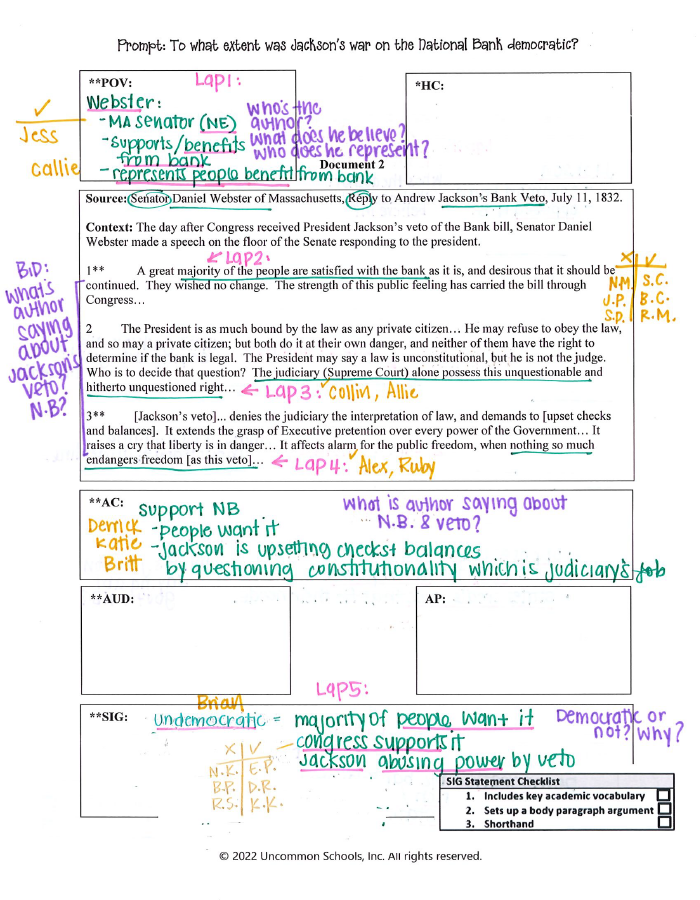 Prompt: To what extent was Jackson's war on the National Bank democratic?
**POV:
Lap 1:
*HC:
Webster:
- MA senator (NE)
- supports/benefits
from bank
- represents people benefit from bank
who's the
author?
what does he believe?
who does he represent?
✓
Jess
Callie
Document 2
Source: Senator Daniel Webster of Massachusetts, Reply to Andrew Jackson's Bank Veto, July 11, 1832.
Context: The day after Congress received President Jackson's veto of the Bank bill, Senator Daniel
Webster made a speech on the floor of the Senate responding to the president.
← Lap 2:
1** A great majority of the people are satisfied with the bank as it is, and desirous that it should be
continued. They wished no change. The strength of this public feeling has carried the bill through
Congress…
X ✓
N.M. S.C.
J.P. B.C.
S.P. R.M.
BID:
what's
author
saying
about
Jackson's
veto?
N.B?
2 The President is as much bound by the law as any private citizen… He may refuse to obey the law,
and so may a private citizen; but both do it at their own danger, and neither of them have the right to
determine if the bank is legal. The President may say a law is unconstitutional, but he is not the judge.
Who is to decide that question? The judiciary (Supreme Court) alone possess this unquestionable and
hitherto unquestioned right… ← Lap 3: ✓ Collin, Allie
3** [Jackson's veto]... denies the judiciary the interpretation of law, and demands to [upset checks
and balances]. It extends the grasp of Executive pretention over every power of the Government… It
raises a cry that liberty is in danger… It affects alarm for the public freedom, when nothing so much
endangers freedom [as this veto]… ← Lap 4: ✓ Alex, Ruby
**AC:
Support NB
- people want it
- Jackson is upsetting checks + balances
by questioning constitutionality which is judiciary's job
what is author saying about
N.B. & veto?
Derrick
Katie
Britt
**AUD:
AP:
Lap 5:
Brian
**SIG:
Undemocratic = majority of people want it
- congress supports it
Jackson abusing power by veto
Democratic or
not? why?
X ✓
N.K. E.P.
B.P. D.R.
R.S. K.K.
SIG Statement Checklist
1. Includes key academic vocabulary
2. Sets up a body paragraph argument
3. Shorthand
© 2022 Uncommon Schools, Inc. All rights reserved.